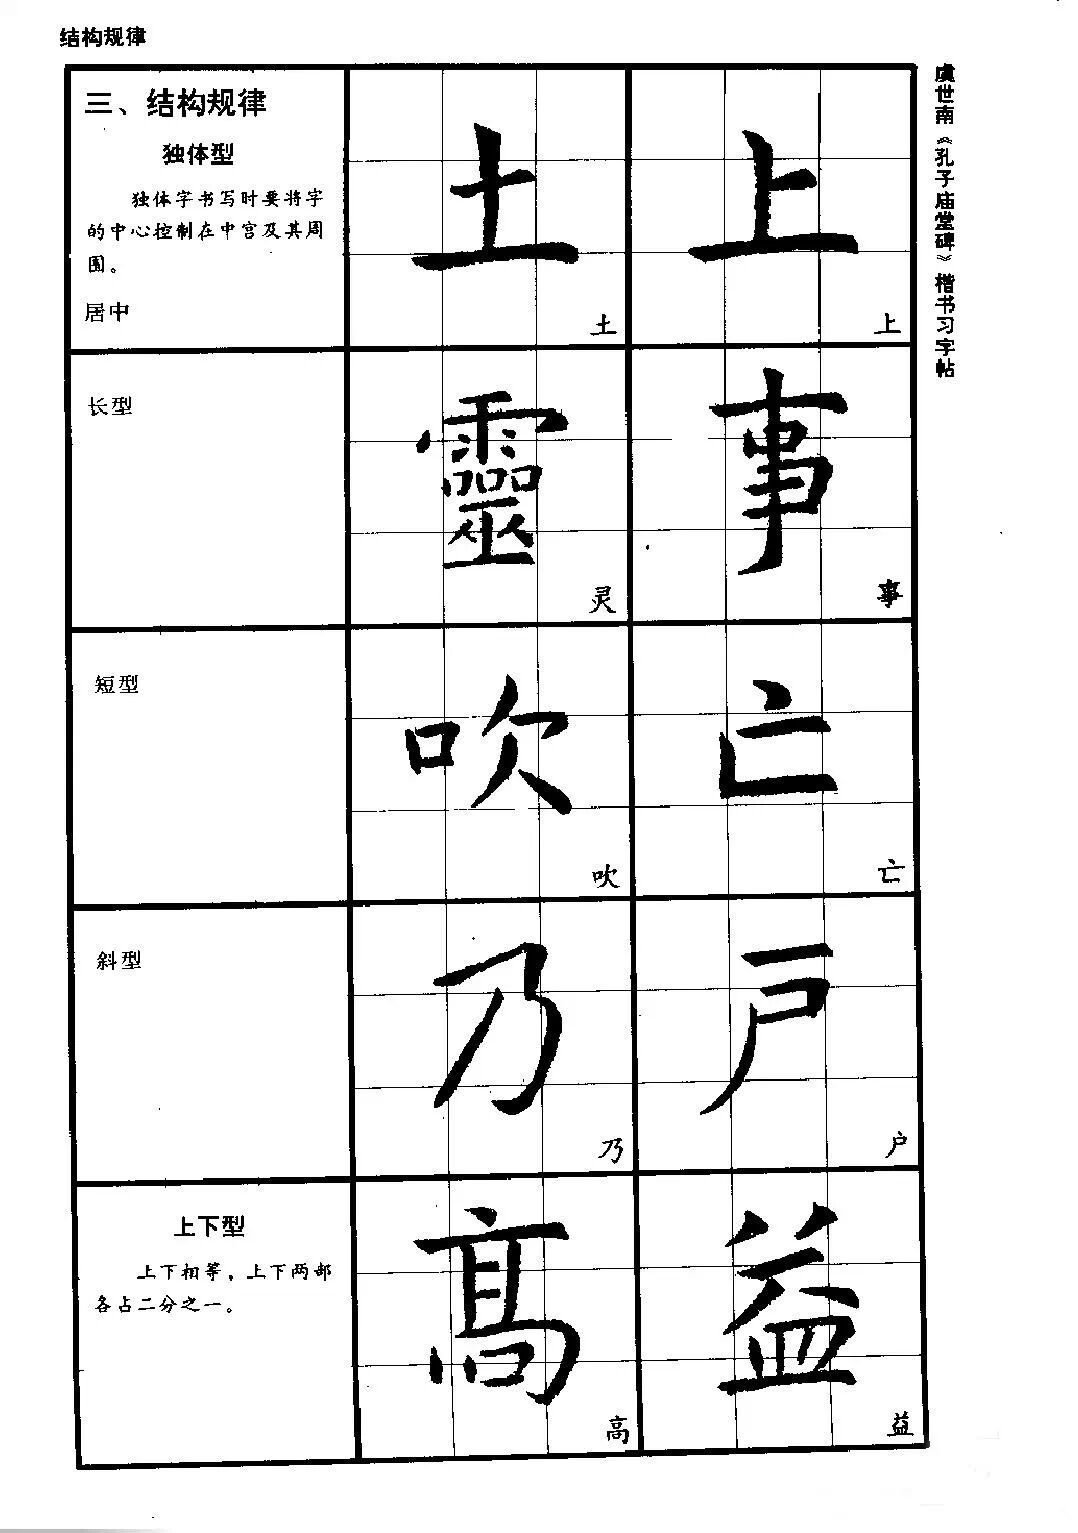 结构规律
三、结构规律
独体型
独体字书写时要将字
的中心控制在中宫及其周
围。
居中
土
土
上
上
长型
靈
灵
事
事
短型
吹
吹
亡
亡
斜型
乃
乃
户
户
上下型
上下相等，上下两部
各占二分之一。
髙
高
益
益
虞世南《孔子庙堂碑》楷书习字帖